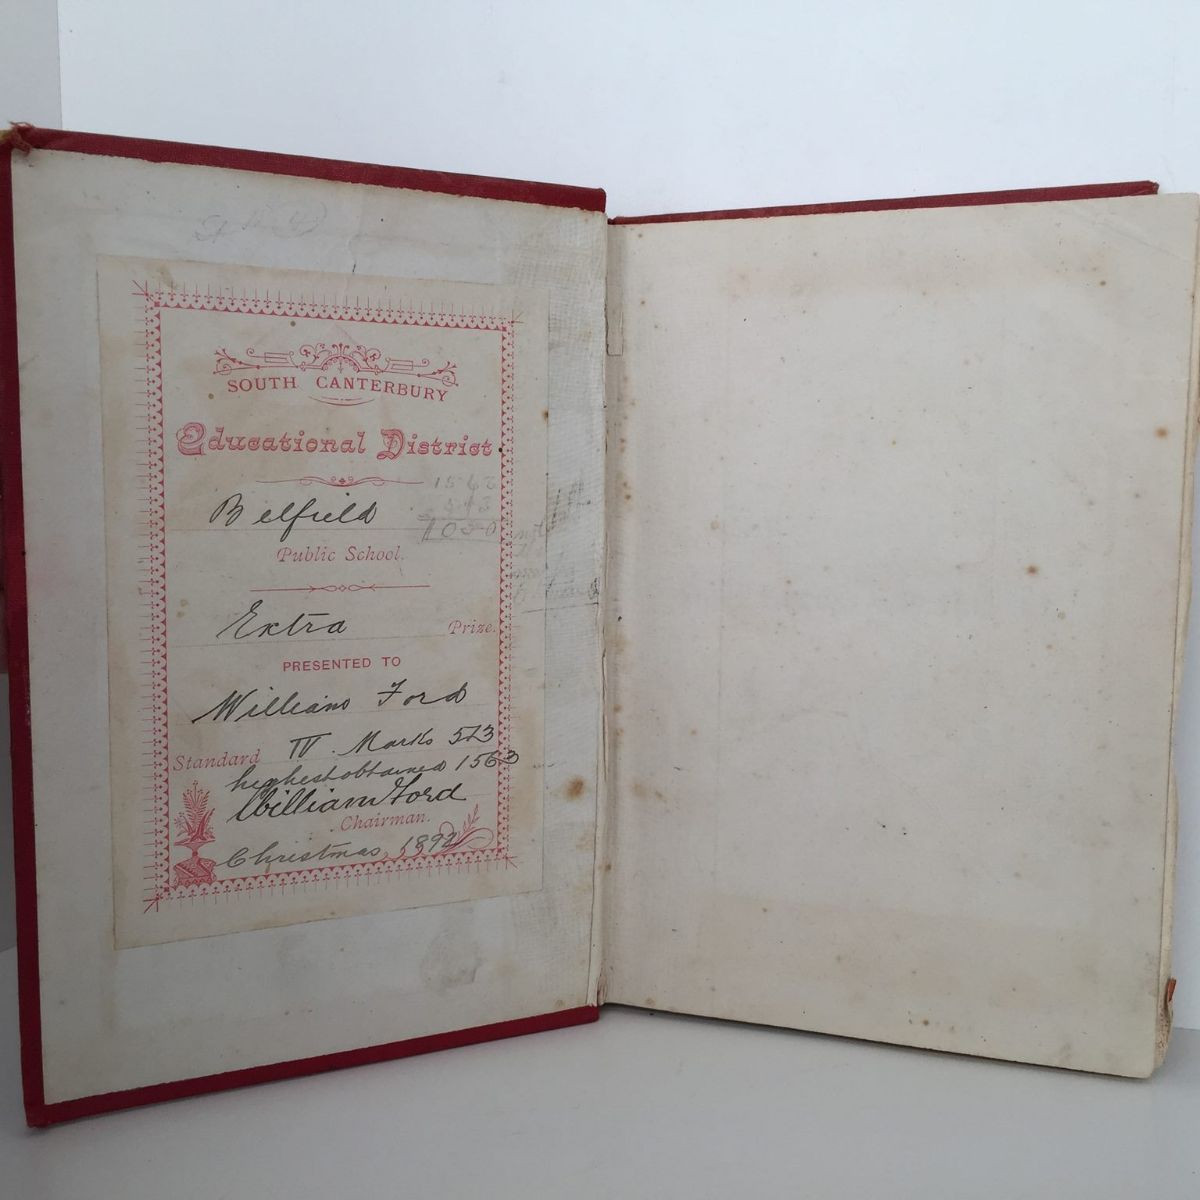 SOUTH CANTERBURY
Educational District
1562
Belfield
Public School.
Extra Prize.
PRESENTED TO
William Ford
Standard IV. Marks 513
highest obtained 1563
William Ford
Chairman.
Christmas, 1892